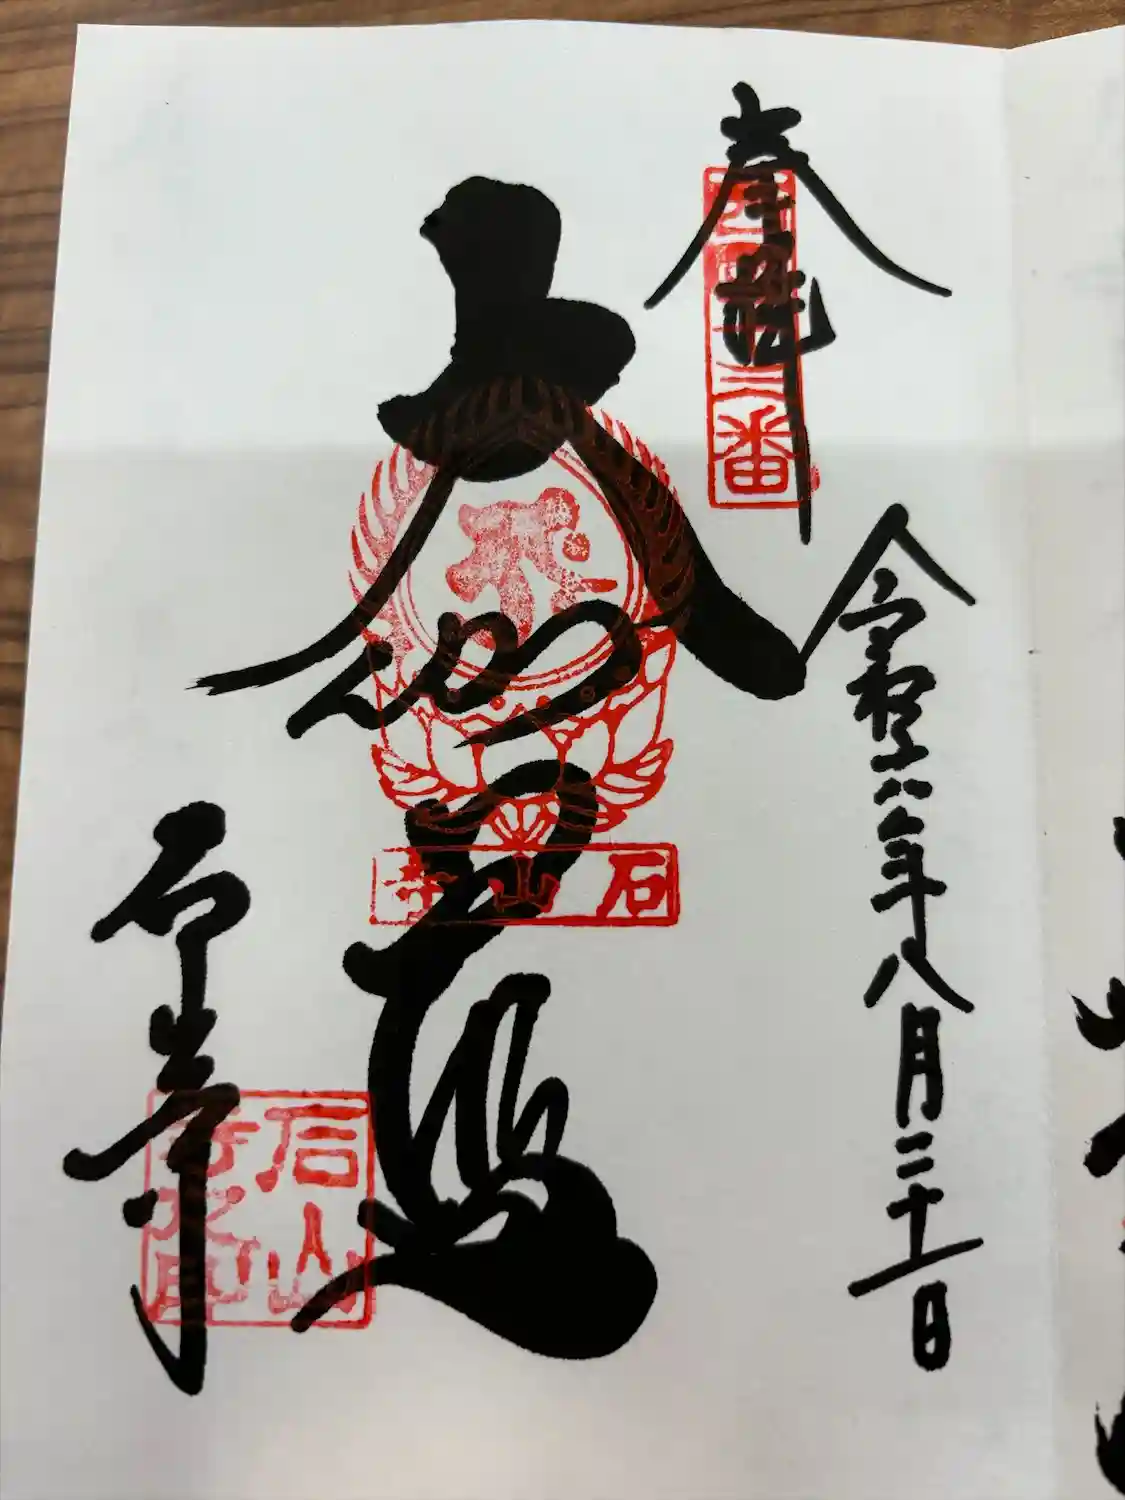 奉拝
西国十三番
令和六年八月二十一日
大伽藍
石山寺
石山寺
石山寺
印